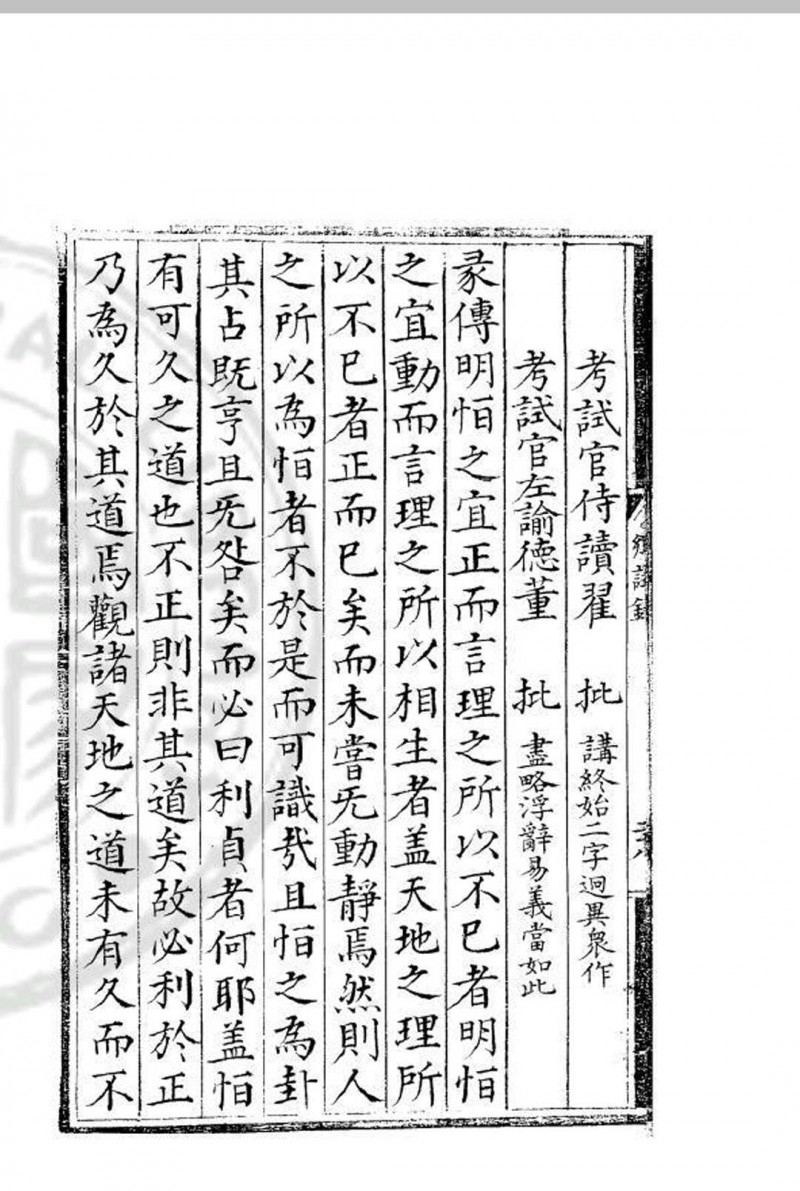 考試官侍讀翟 批 講終始二字迥異衆作
考試官左諭德董 批 盡略浮辭易義當如此
彖傳明恒之宜正而言理之所以不已者明恒
之宜動而言理之所以相生者盖天地之理所
以不已者正而已矣而未嘗无動靜焉然則人
之所以為恒者不於是而可識㢤且恒之為卦
其占既亨且无咎矣而必曰利貞者何耶盖恒
有可久之道也不正則非其道矣故必利於正
乃為久於其道焉觀諸天地之道未有久而不